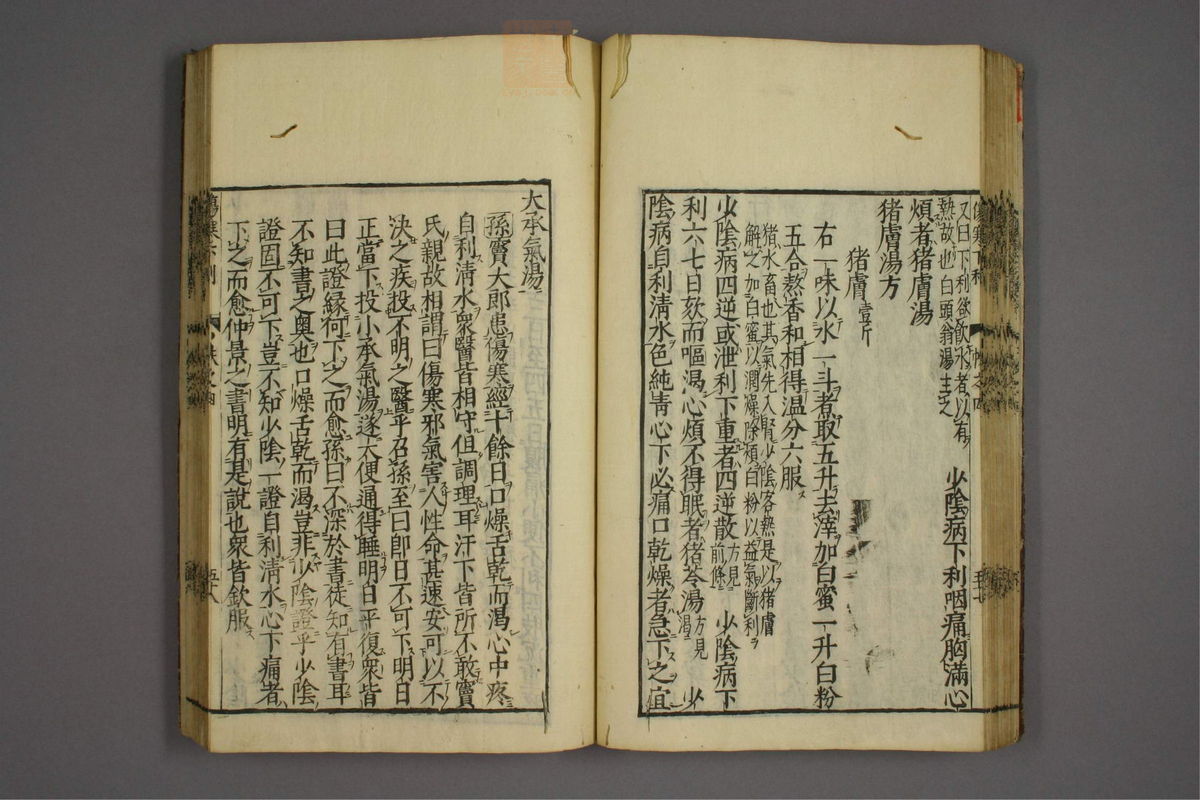 又曰下利欲飲水者以有
熱故也白頭翁湯主之
少陰病下利咽痛胸滿心
煩者猪膚湯
猪膚湯方
猪膚壹斤
右一味以水一斗煮取五升去滓加白蜜一升白粉
五合熬香和相得溫分六服
猪水畜也其氣先入腎少陰客熱是以猪膚
解之加白蜜以潤燥除煩白粉以益氣斷利
少陰病四逆或泄利下重者四逆散方見前條
少陰病下
利六七日欬而嘔渴心煩不得眠者猪苓湯方見渴
少
陰病自利清水色純靑心下必痛口乾燥者急下之宜
大承氣湯
孫竇大郎患傷寒經十餘日口燥舌乾而渴心中疼
自利清水衆醫皆相守但調理耳汗下皆所不敢竇
氏親故相謂曰傷寒邪氣害人性命甚速安可以不
決之疾投不明之醫乎召孫至曰卽日不可下明日
正當下投小承氣湯遂大便通得睡明日平復衆皆
曰此證緣何下之而愈孫曰不深於書徒知有書耳
不知書之奧也口燥舌乾而渴豈非少陰證乎少陰
證固不可下豈不知少陰一證自利清水心下痛者
下之而愈仲景之書明有是說也衆皆欽服